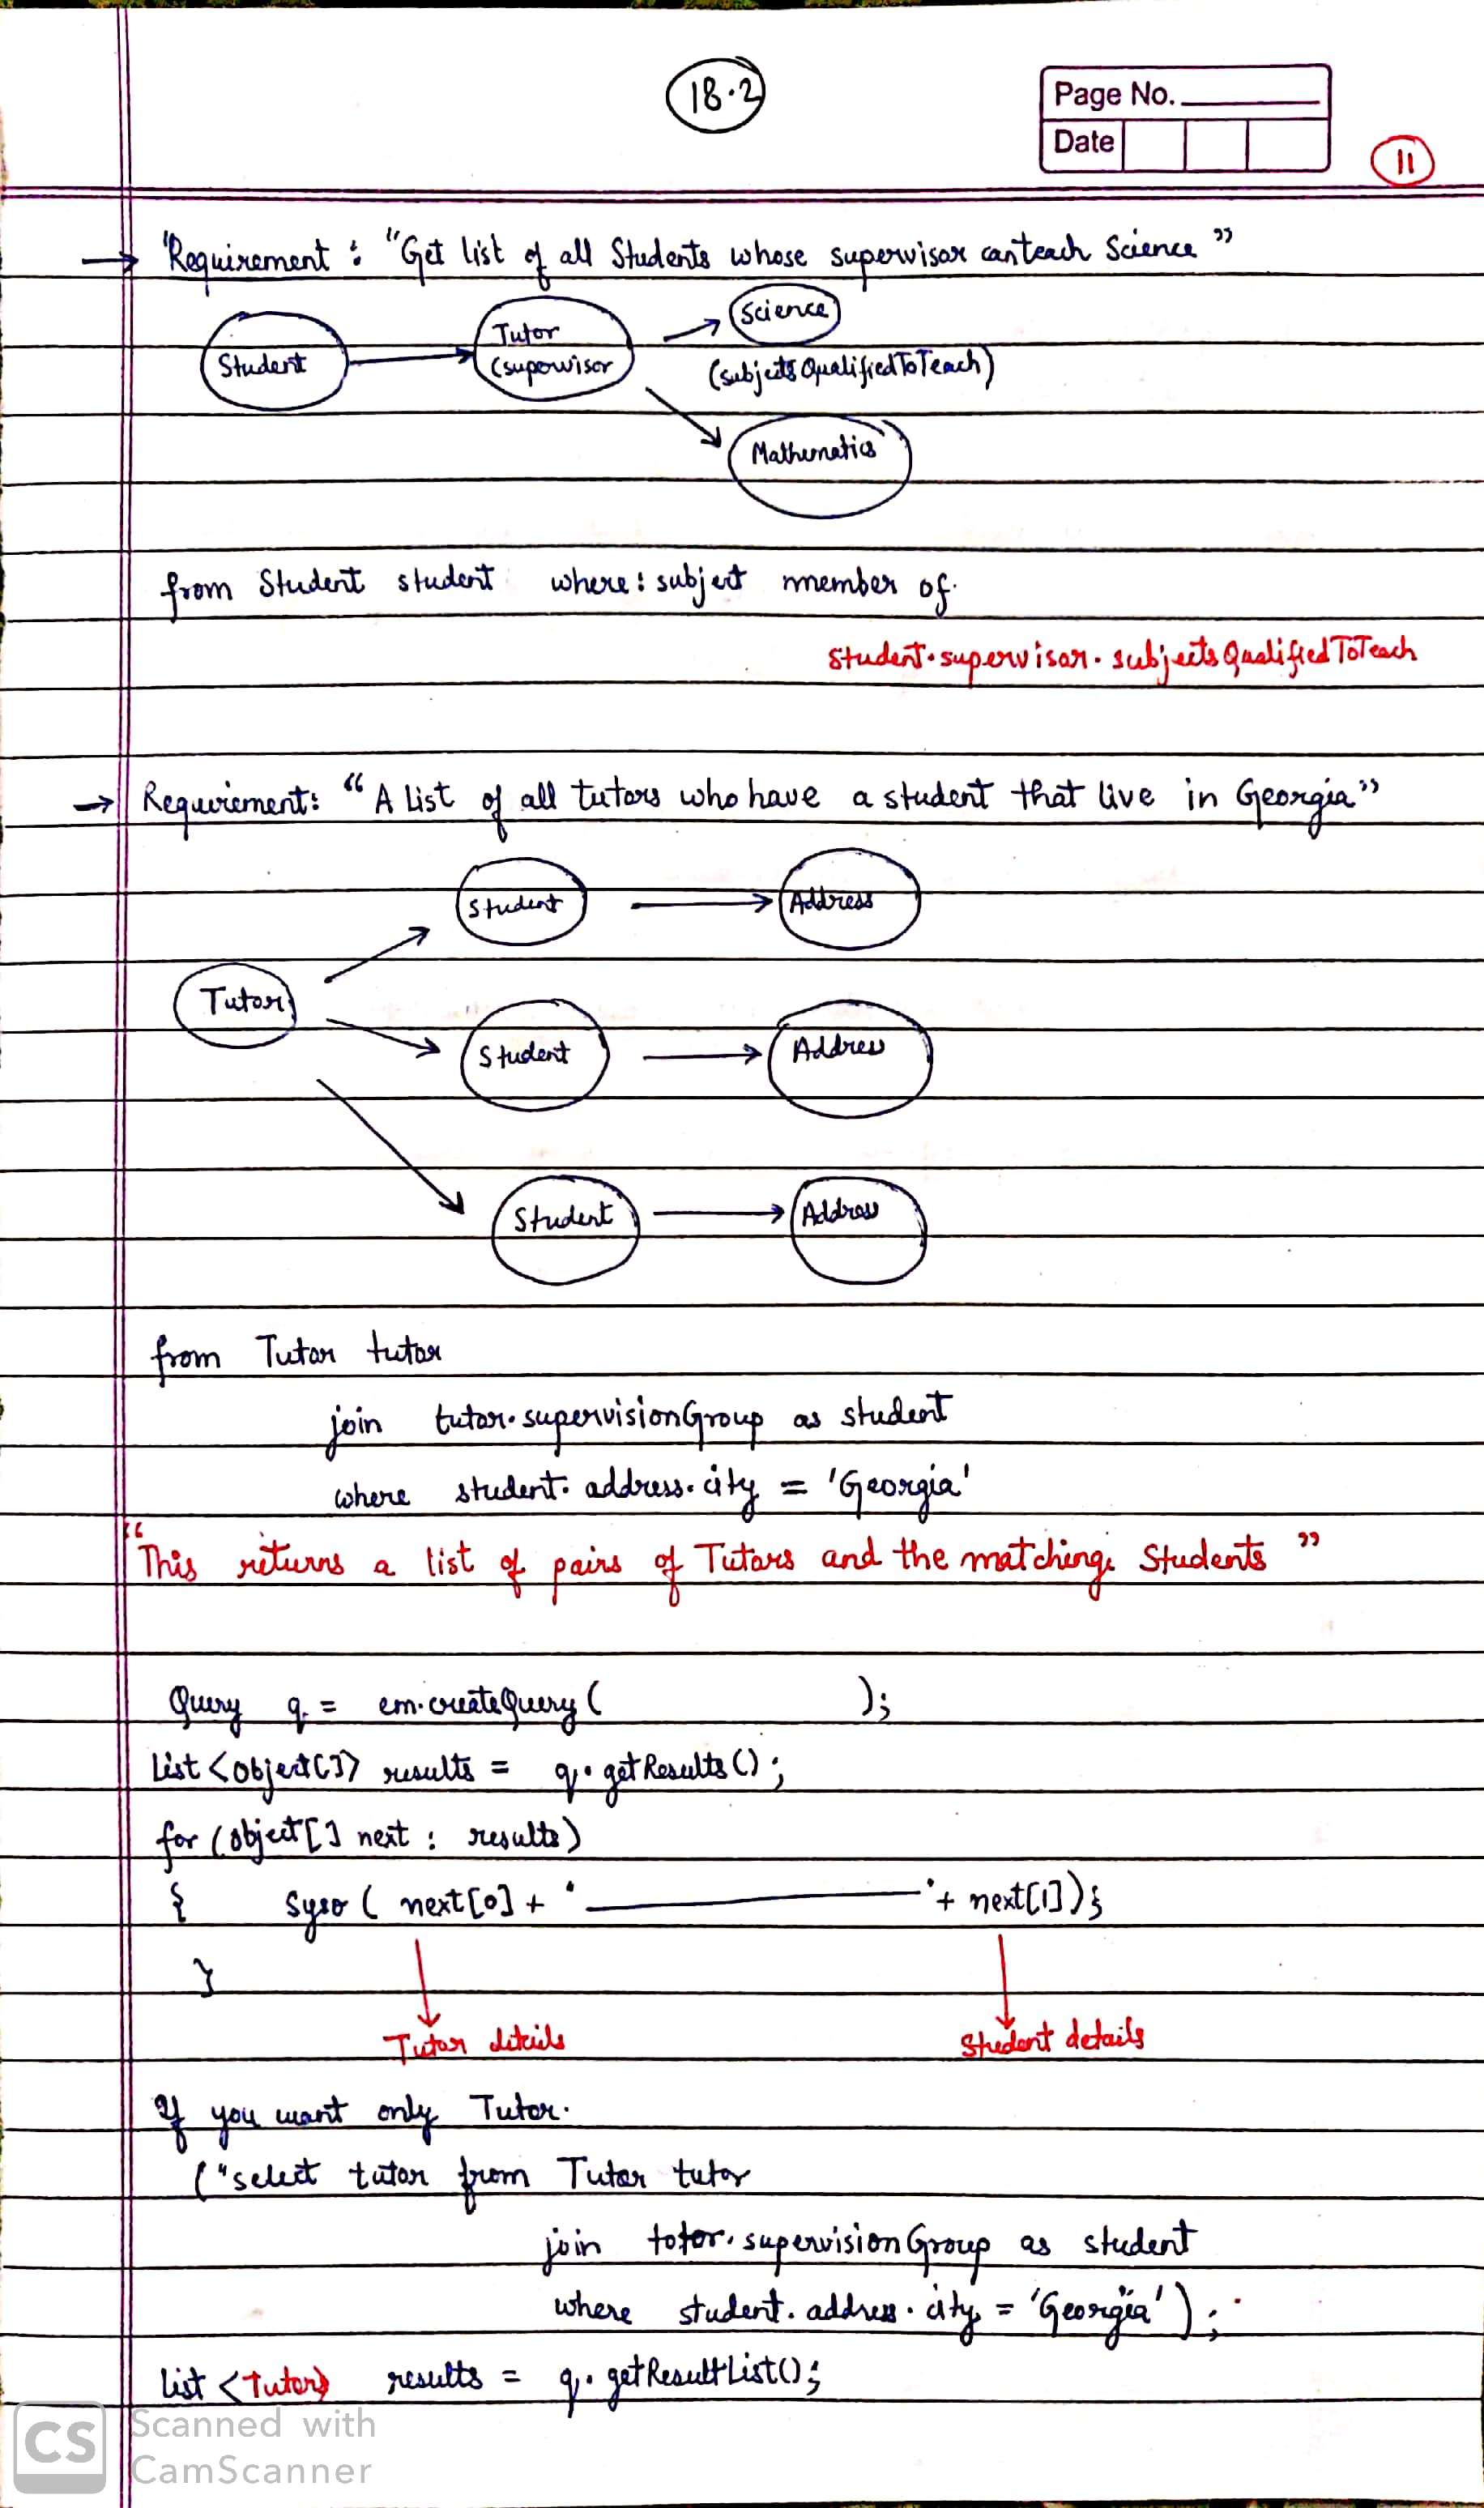 18.2
Page No.
Date
11
→ Requirement : "Get list of all Students whose supervisor can teach Science"
Science
Student → Tutor
(supowisor
(subjects Qualified To Teach)
Mathematics
from Student student where : subject member of
student.supervisor.subjects Qualified ToTeach
→ Requirement: "A List of all tutors who have a student that live in Georgia"
Student → Address
Tutor
Student → Address
Student → Address
from Tutor tutor
join tutor.supervisionGroup as student
where student.address.city = 'Georgia'
"This returns a list of pairs of Tutors and the matching Students"
Query q = em.createQuery( );
List <object[]> results = q.getResults();
for (object[] next : results)
{ syso ( next[0] + " ——— " + next[1]);
}
Tutor details Student details
If you want only Tutor.
("select tutor from Tutor tutor
join totor.supervisionGroup as student
where student.address.city = 'Georgia');
list <Tutor> results = q.getResultList();
CS Scanned with
CamScanner